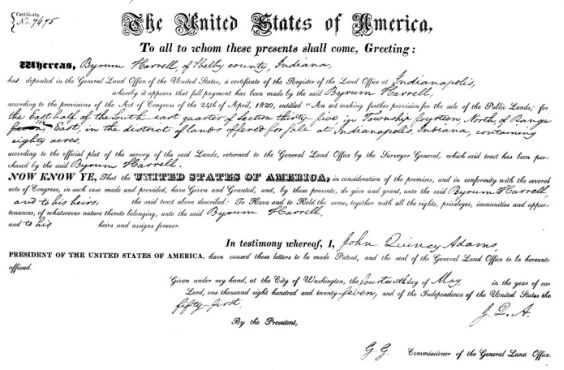 Certificate
No. 7675
The United States of America,
To all to whom these presents shall come, Greeting:
Whereas, Byrum Harrell, of Shelby county, Indiana,
has deposited in the General Land Office of the United States, a certificate of the Register of the Land Office at Indianapolis,
whereby it appears that full payment has been made by the said Byrum Harrell,
according to the provisions of the Act of Congress of the 24th of April, 1820, entitled "An act making further provision for the sale of the Public Lands," for
the East half of the South east quarter of Section thirty five in Township fourteen North, of Range
East, in the district of lands offered for sale at Indianapolis, Indiana, containing
eighty acres,
according to the official plat of the survey of the said Lands, returned to the General Land Office by the Surveyor General, which said tract has been pur-
chased by the said Byrum Harrell:
NOW KNOW YE, That the UNITED STATES OF AMERICA, in consideration of the premises, and in conformity with the several
acts of Congress, in such case made and provided, have Given and Granted, and, by these presents, do give and grant, unto the said Byrum Harrell,
and to his heirs, the said tract above described: To Have and to Hold the same, together with all the rights, privileges, immunities and appur-
tenances, of whatsoever nature thereto belonging, unto the said Byrum Harrell,
and to his heirs and assigns forever.
In testimony whereof, I, John Quincy Adams,
PRESIDENT OF THE UNITED STATES OF AMERICA, have caused these letters to be made Patent, and the seal of the General Land Office to be hereunto
affixed.
Given under my hand, at the City of Washington, the fourteenth day of May in the year of our
Lord, one thousand eight hundred and twenty-seven, and of the Independence of the United States the
fifty-first.
J. Q. A.
By the President,
G. G. Commissioner of the General Land Office.